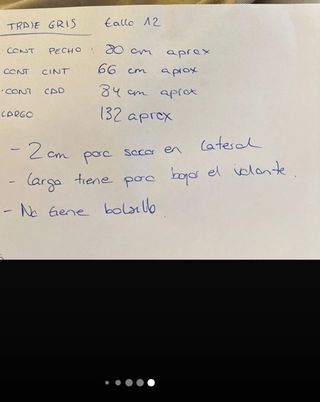 TRAJE GRIS talla 12
· CONT PECHO : 80 cm aprox
CONT CINT 66 cm aprox
· CONT CAD 84 cm aprox
LARGO 132 aprox
- 2 cm para sacar en lateral
- Largo tiene para bajar el volante.
- No tiene bolsillo.